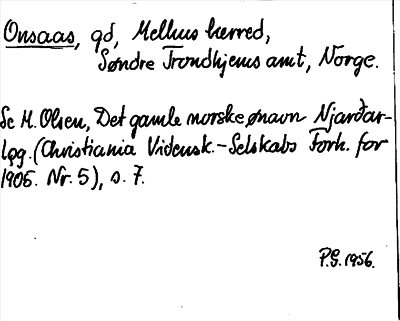 Onsaas, gd, Melhus herred,
Søndre Trondhjems amt, Norge.
Se M. Olsen, Det gamle norske ønavn Njarðar-
lǫg. (Christiania Vidensk.-Selskabs Forh. for
1905. Nr. 5), s. 7.
P.G. 1956.